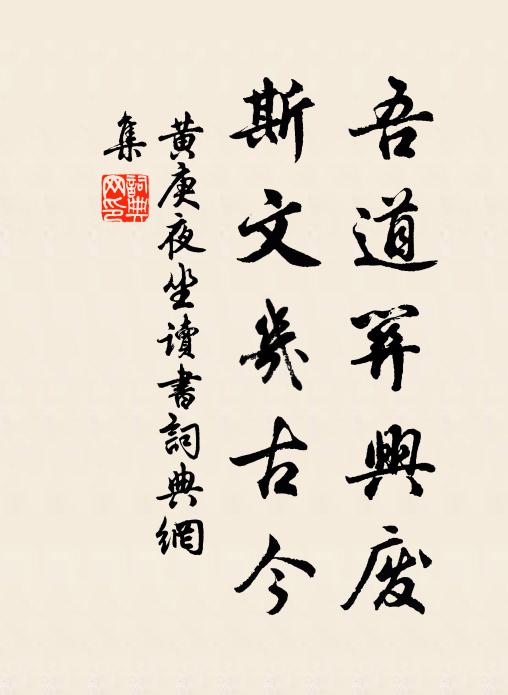 吾道關興廢
斯文幾古今
黃庚夜坐讀書詞典網
集
詞典
网印